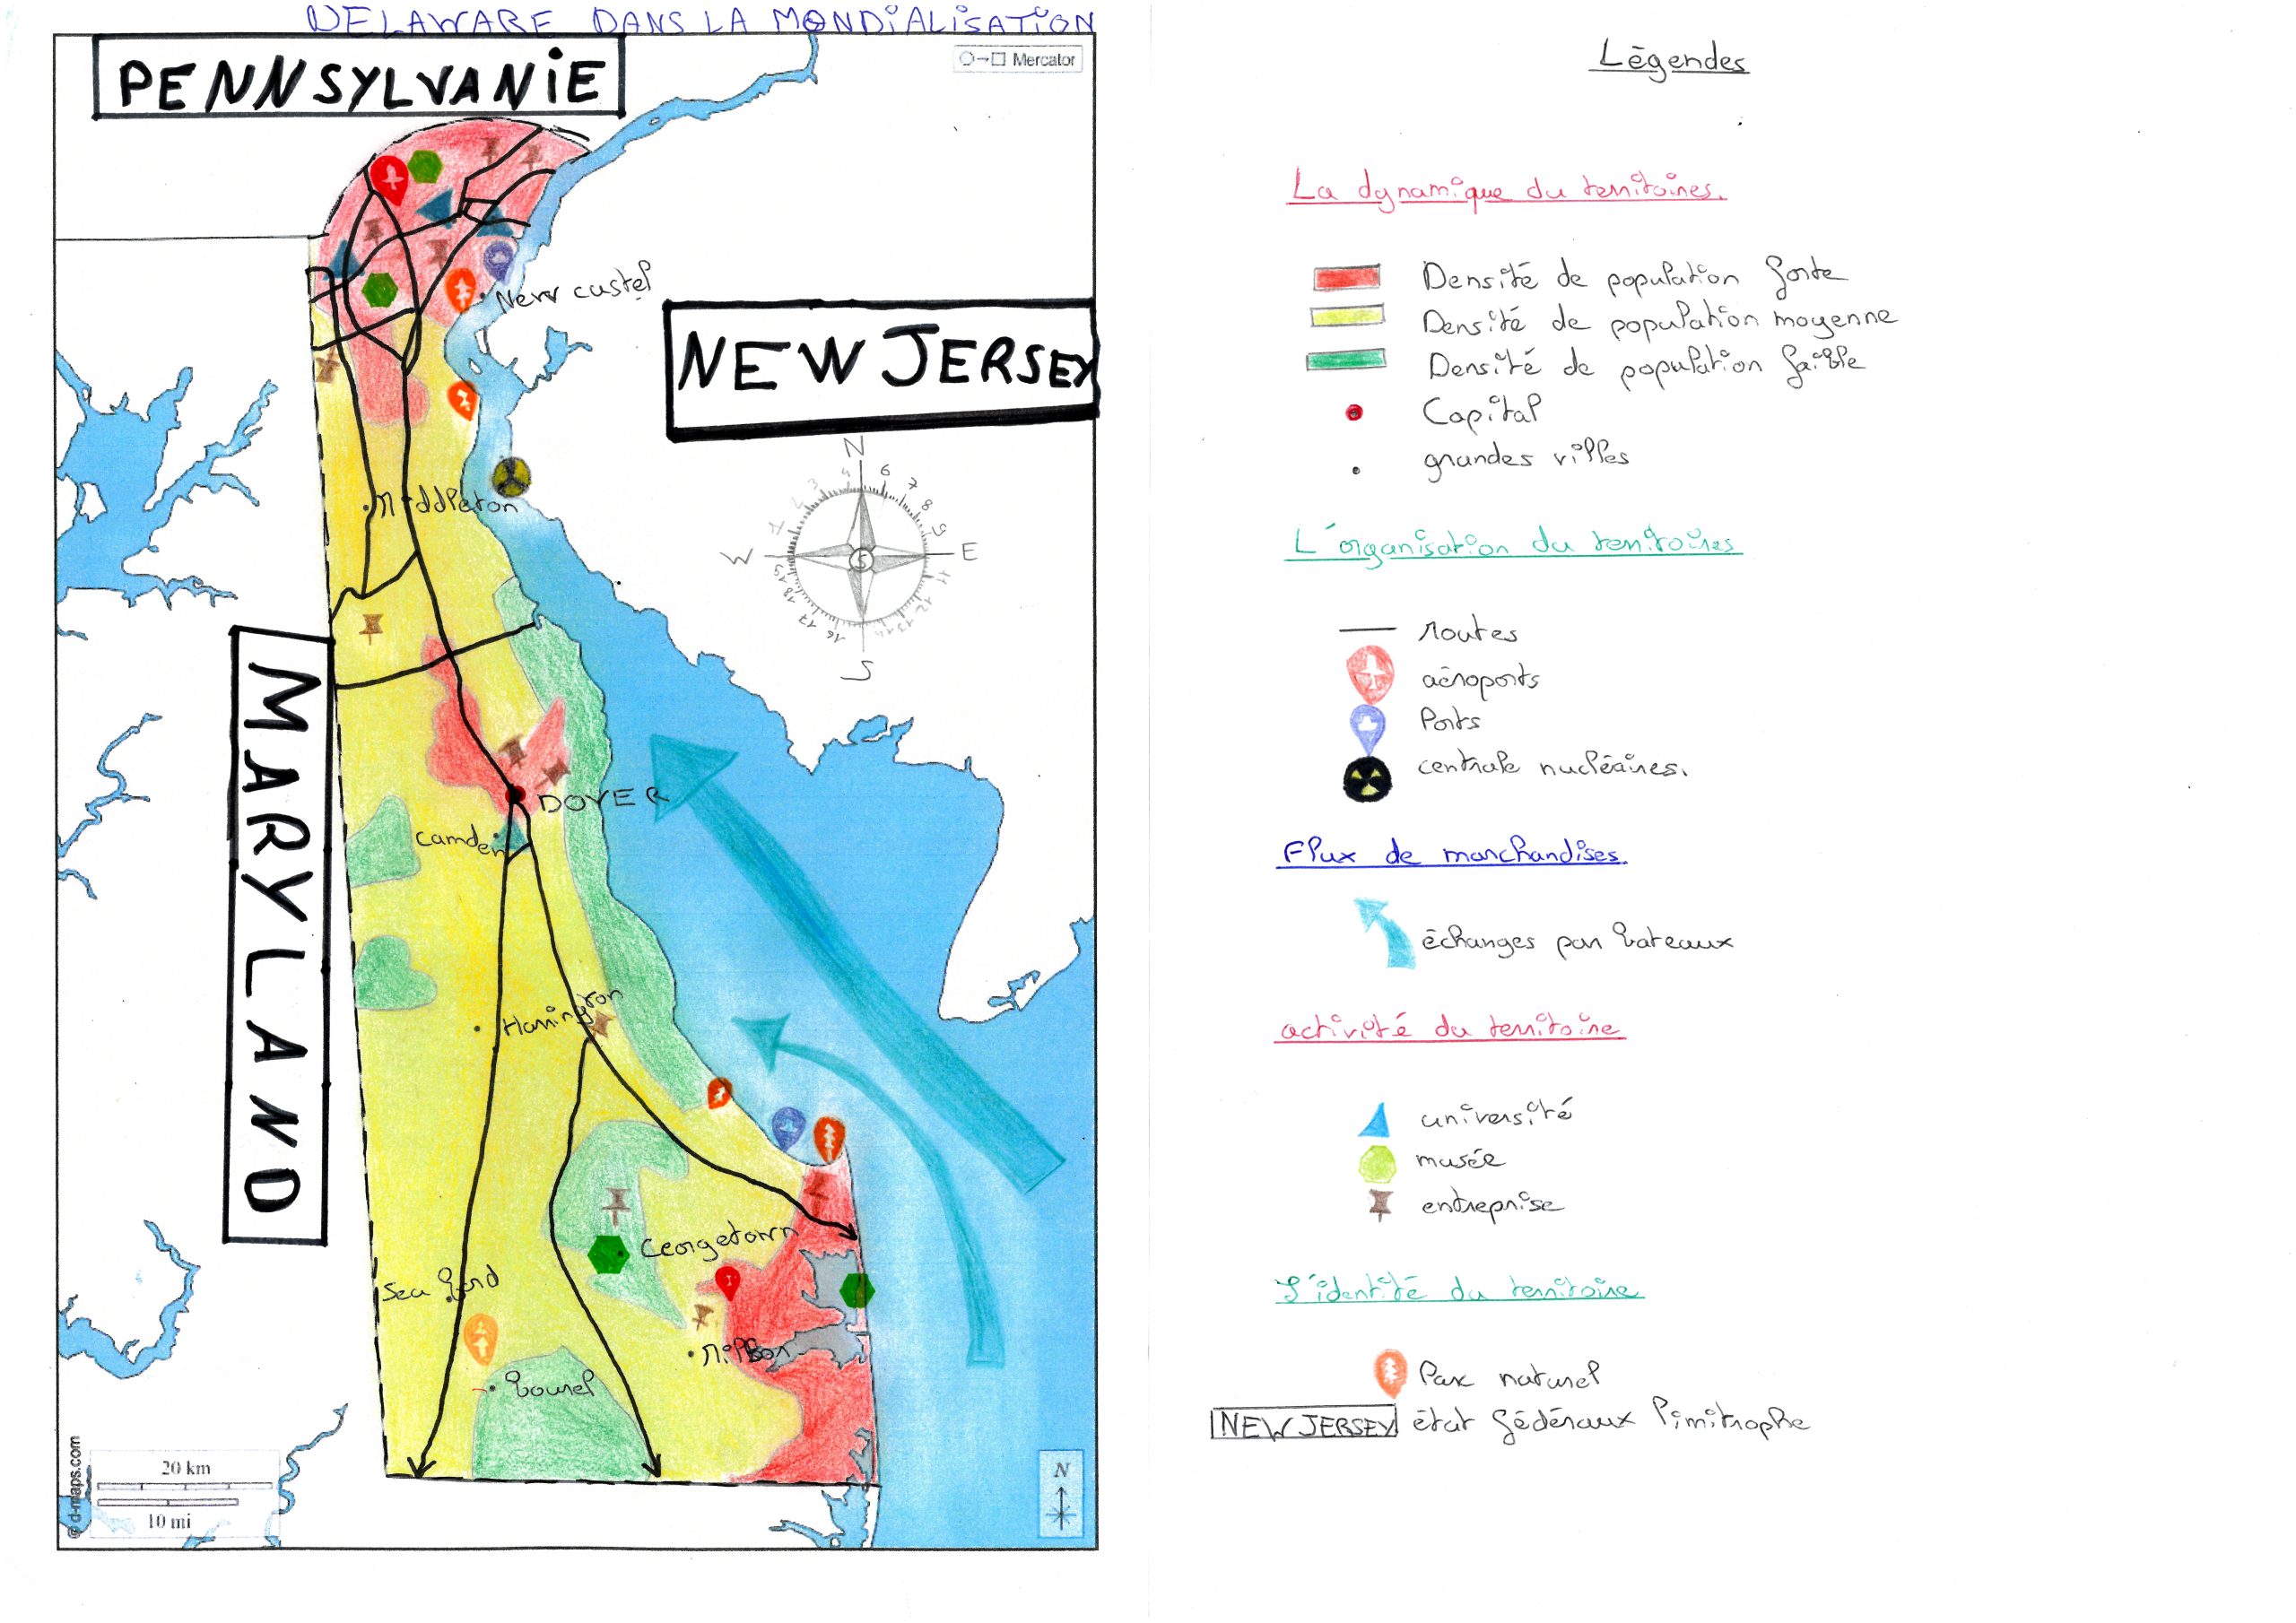 DELAWARE DANS LA MONDIALISATION
Mercator
PENNSYLVANIE
New castel
NEW JERSEY
Middleton
N
4 6
3 7
2 8
1 9
W E
S
19 11
18 12
17 13
16 14
MARYLAND
DOVER
Camden
Harrington
Georgetown
Sea ford
Milbor
Lourel
20 km
10 mi
© d-maps.com
N
Légendes
La dynamique du territoires.
Densité de population forte
Densité de population moyenne
Densité de population faible
Capital
grandes villes
L'organisation du territoires
routes
aéroports
Ports
centrale nucléaires.
Flux de marchandises.
échanges par bateaux
activité du territoire
université
musée
entreprise
L'identité du territoire
Parc naturel
NEW JERSEY état fédéraux limitrophe